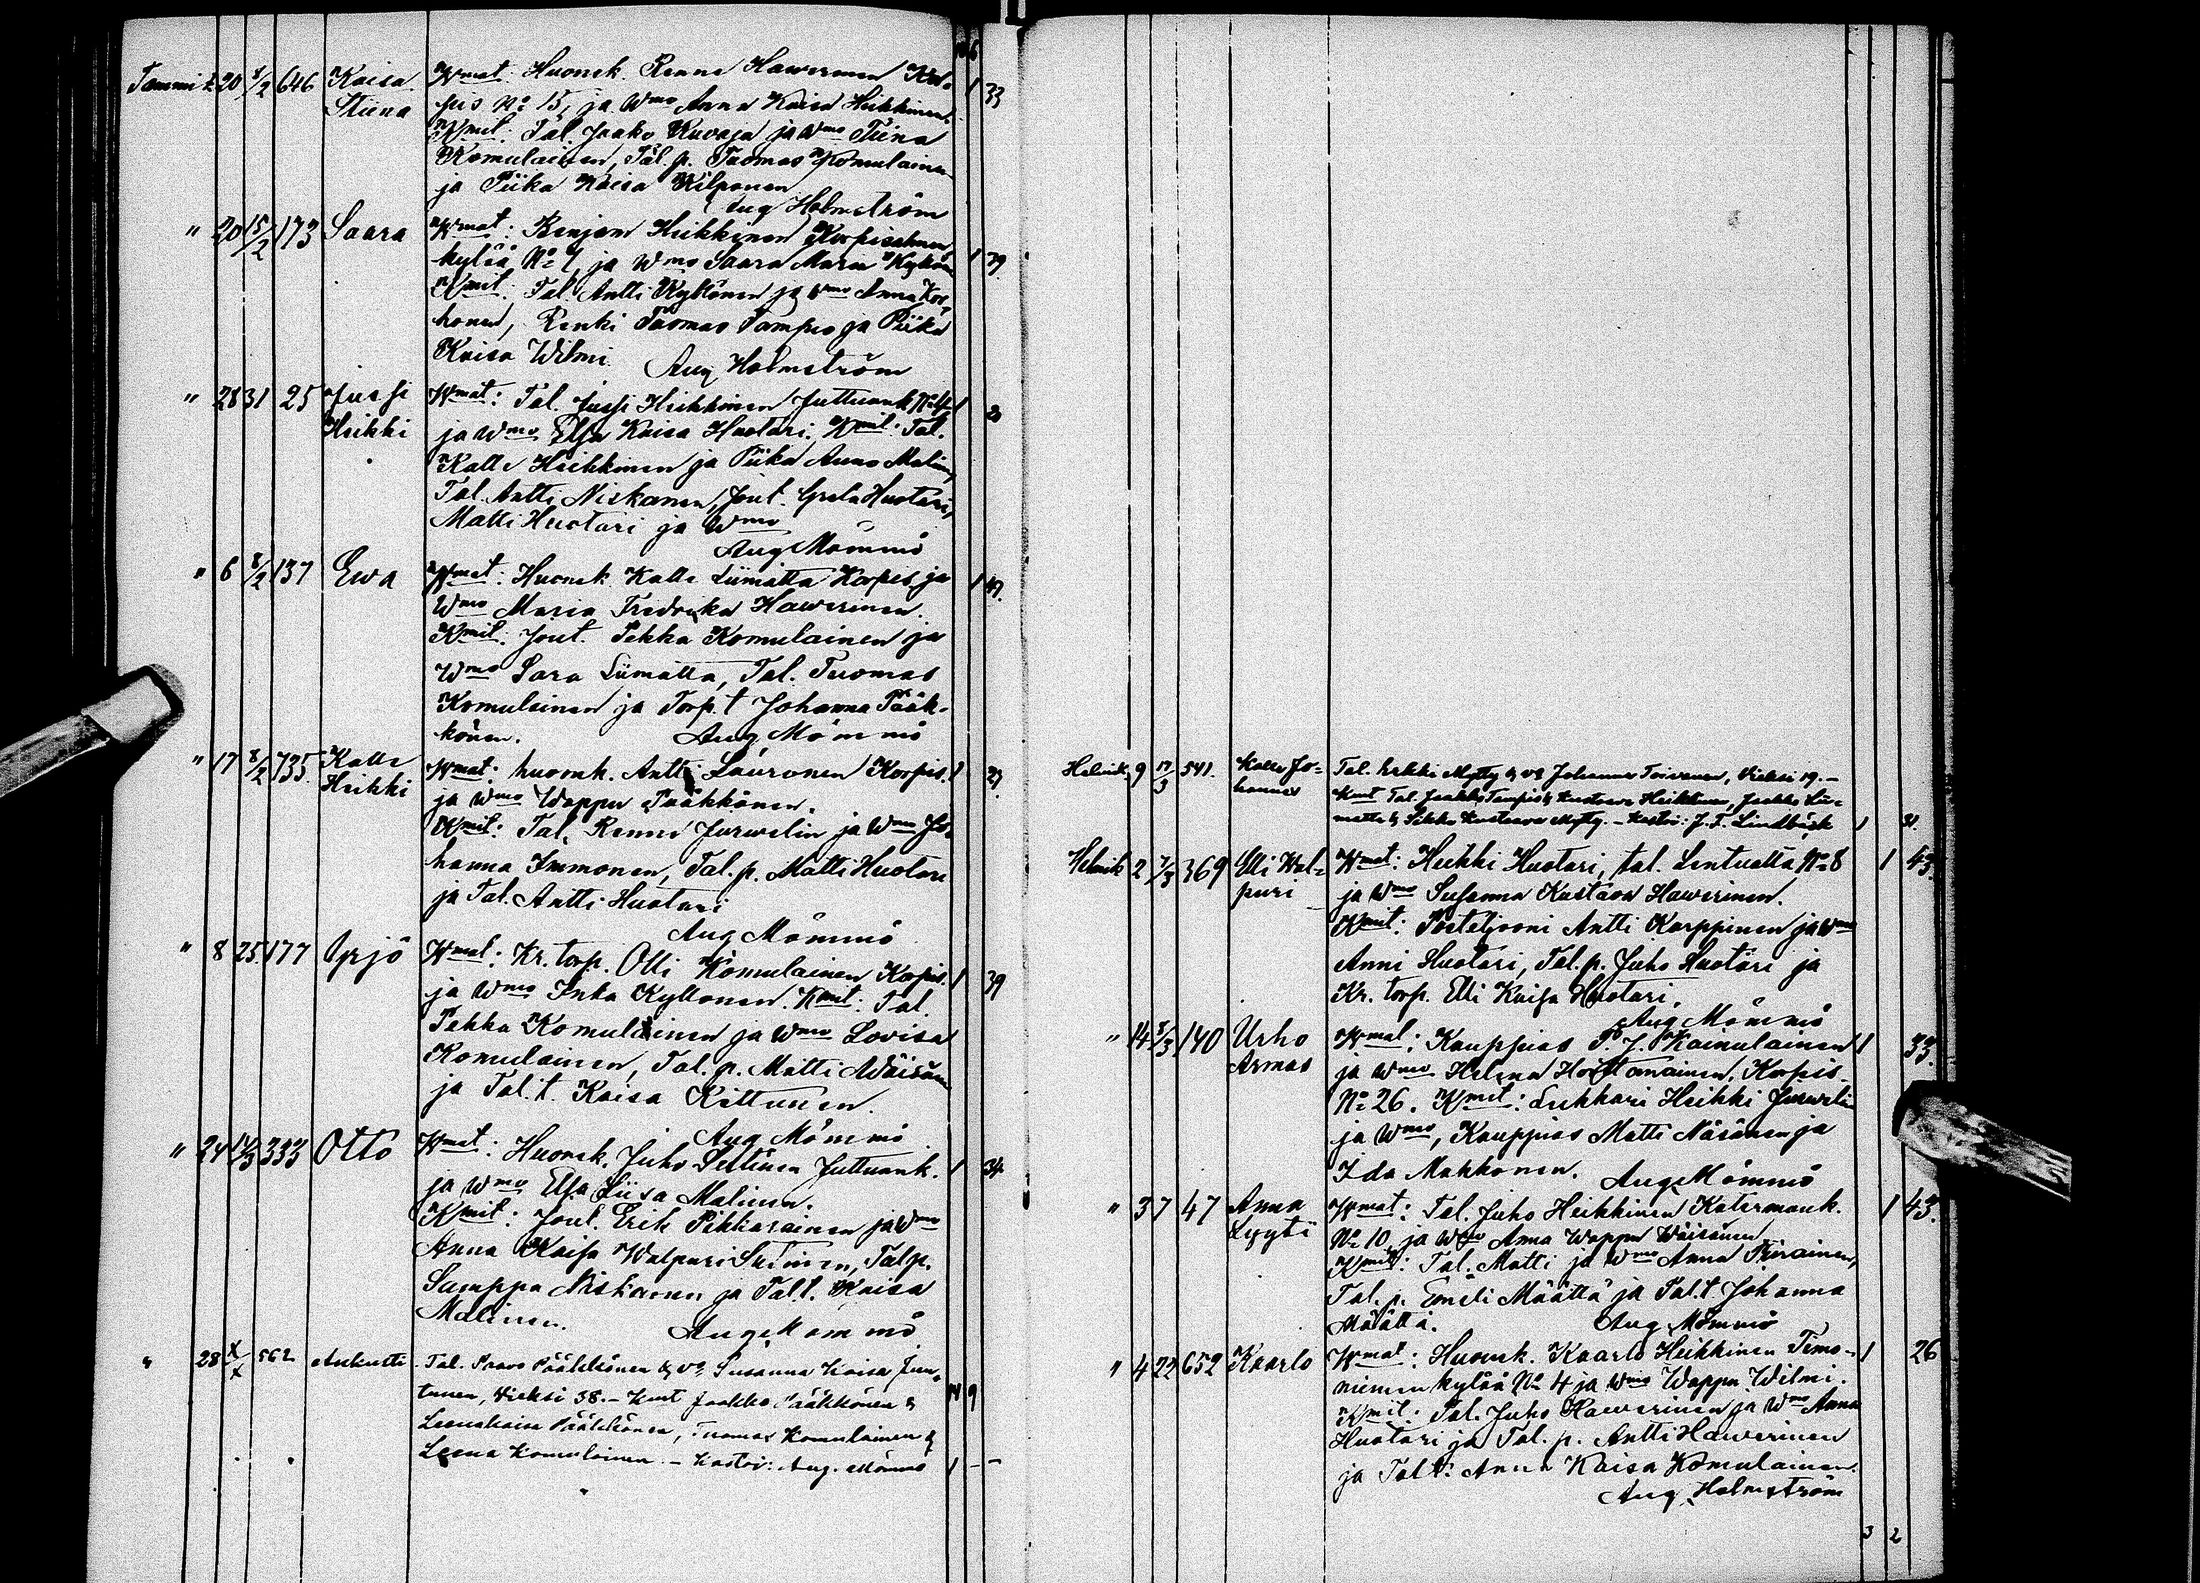 Tammi k 20 8/2 646 Kaisa Stiina
Wmat: Huonek. Renne Hawerinen Kor-
pis No 15, ja Wmo Anna Kaisa Heikkinen. 1 33
Kmit: Tal. Jaako Kuvaja ja Wmo Tiina
Komulainen, Tal. p. Tuomas Komulainen
ja Piika Kaisa Kilponen
Aug Holmström
" 20 15/2 173 Saara
Wmat: Benjam Heikkinen Korpisalmen
kylää No 7, ja Wmo Saara Maria Kyllön 1 39
Kmit: Tal. Antti Kyllönen ja Wmo Anna Kor-
honen, Renki Tuomas Tampio ja Piika
Kaisa Wilmi. Aug Holmström
" 28 31 25 Jussi Heikki
Wmat: Tal. Jussi Heikkinen Juttuank No 4 1
ja Wmo Elsa Kaisa Huotari. Kmit: Tal.
Kalle Heikkinen ja Piika Anna Malin,
Tal. Antti Niskanen, Jout. Greta Huotari,
Matti Huotari ja Wmo
Aug Mömmö
" 6 8/2 137 Ewa
Wmat. Huonek Kalle Liimatta Korpis ja 1
Wmo Maria Fredrika Hawerinen.
Kmit: Jout. Pekka Komulainen ja
Wmo Sara Liimatta, Tal. Tuomas
Komulainen ja Torp.t Johanna Pääk-
könen. Aug Mömmö
" 17 8/2 735 Kalle Heikki
Wmat: huonek. Antti Lauronen Korpis. 1 27
ja Wmo Wappu Pääkkönen.
Kmit: Tal. Renne Jurwelin ja Wmo Jo-
hanna Immonen, Tal. p. Matti Huotari
ja Tal. Antti Huotari
Aug Mömmö
" 8 25 177 Yrjö
Wmat: Kr. torp. Olli Komulainen Korpis. 1 39
ja Wmo Inka Kyllönen. Kmit: Tal.
Pekka Komulainen ja Wmo Lovisa
Komulainen, Tal. p. Matti Wäisän
ja Tal. t. Kaisa Kettunen.
Aug Mömmö
" 24 14/3 333 Otto
Wmat: Huonek. Juho Seilinen Juttuank. 1 34
ja Wmo Elsa Liisa Malinen.
Kmit: Jout. Erik Pikkarainen ja Wmo
Anna Kaisa Walpuri Sutinen, Tal p.
Samppa Niskanen ja Tal t. Kaisa
Malinen. Aug Mömmö
" 28 x/x 562 Aukusti
Tal. Paavo Pääkkönen & vo Susanna Kaisa Jun-
tunen, Vieksi 38. – Kmt Jaakko Pääkkönen &
Leenakaisa Pääkkönen, Tuomas Komulainen &
Leena Komulainen. – Kastoi: Aug. Mömmö 1 – –
14 9
Helmik. 9 17/3 541. Kalle Jo-hannes
Tal. Heikki Mytty & vo Johanna Toivanen, Vieksi 19. –
Kmt Tal. Jaakko Tampio & Kustaava Heikkinen, Jaakko Lii-
matta & Kustaava Mytty. – Kastoi: J. F. Lindbäck 1 31.
Helmik 2 7/3 369 Elli Wal-puri
Wmat: Heikki Huotari, tal. Lentualla No 8 1 43.
ja Wmo Susanna Kustava Hawerinen.
Kmit: Posteljooni Antti Karppinen ja Wmo
Anni Huotari, Tal. p. Juho Huotari ja
Kr. torp. Elli Kaisa Huotari.
Aug Mömmö
" 14 8/3 140 Urho Armas
Wmat: Kauppias P. J. Kainulainen 1 33.
ja Wmo Helena Korpis-
No 26. Kmit: Lukkari Heikki Jurweli
ja Wmo, Kauppias Matti Näsänen ja
Ida Makkonen. Aug Mömmö
" 3 7 47 Anna Lyyti
Wmat: Tal. Juho Heikkinen Katermank. 1 43.
No 10 ja Wmo Anna Wappu Wäisänen
Kmit: Tal. Matti ja Wmo Anna Piirainen,
Tal. p. Emeli Määttä ja Tal. t Johanna
Määttä. Aug Mömmö
" 4 22 652 Kaarlo
Wmat: Huonek. Kaarlo Heikkinen Timo- 1 26
niemen kylää No 4 ja Wmo Wappu Wilmi.
Kmit: Tal. Juho Hawerinen ja Wmo Anna
Huotari ja Tal. p. Antti Hawerinen
ja Tal t: Anna Kaisa Komulainen.
Aug Holmström
3 2